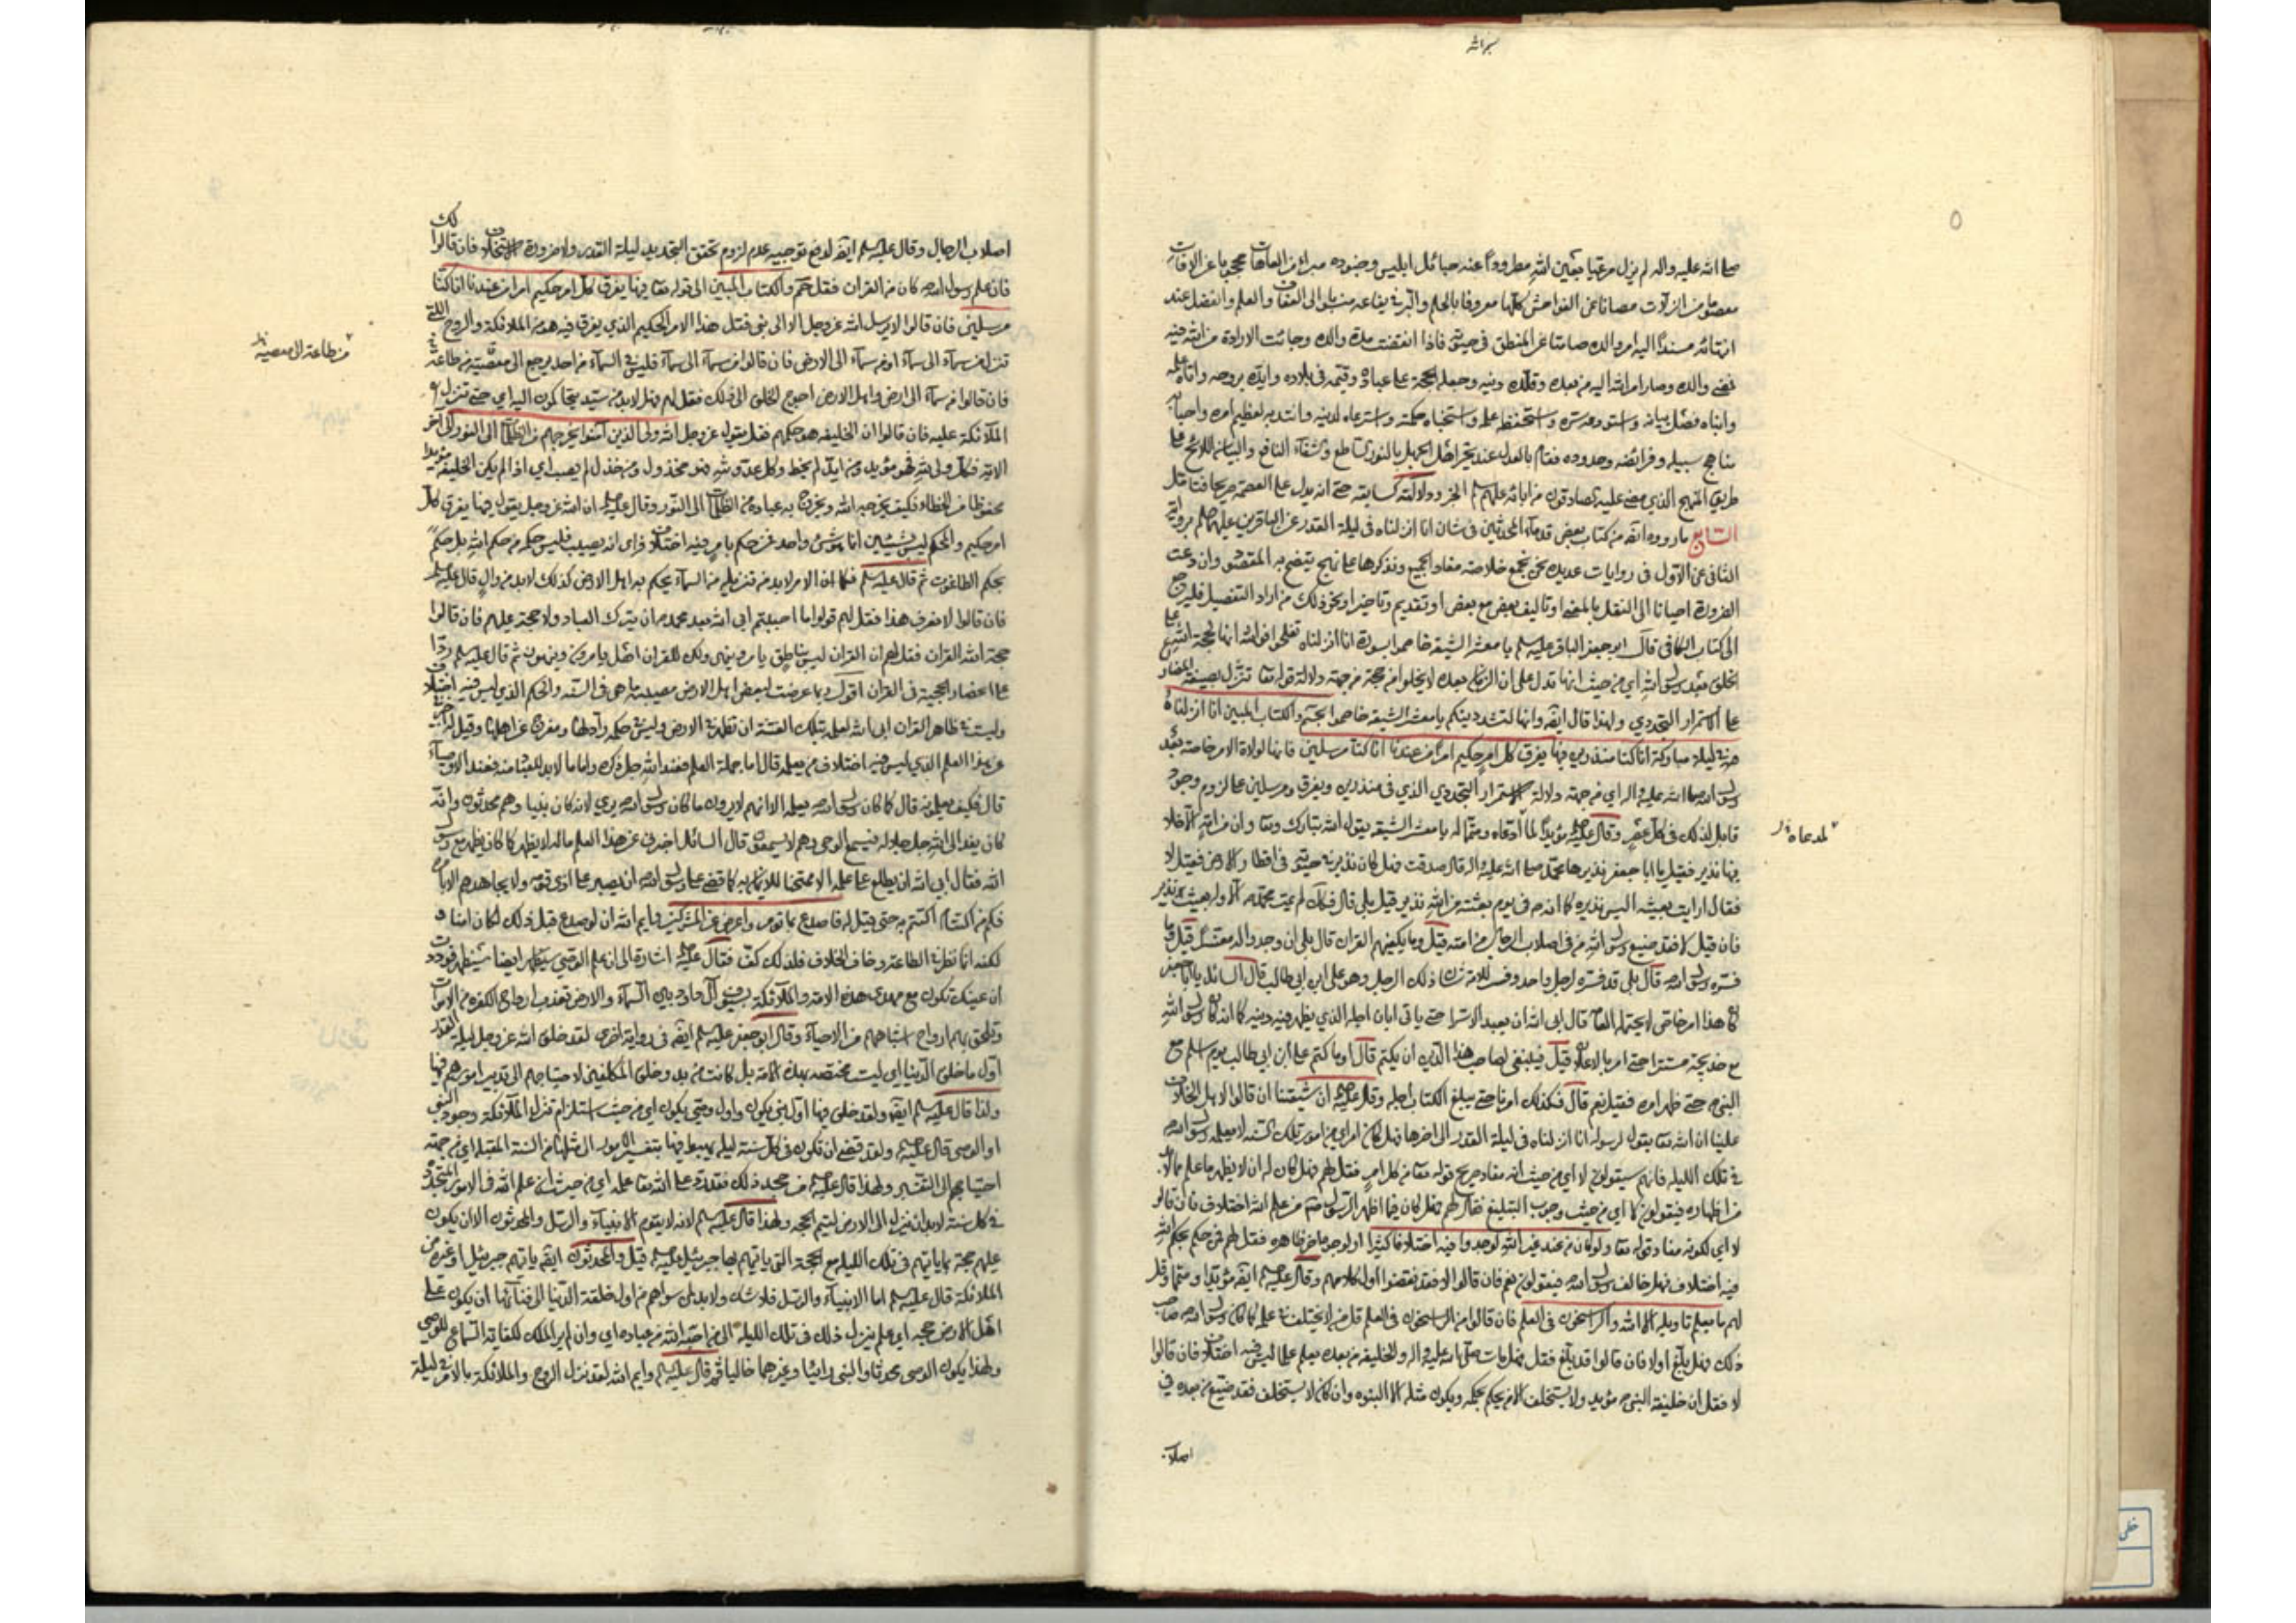 بسم الله
٥
صلى الله عليه واله لم يزل مرعيا بعين الله مطرودا عنه حبائل ابليس وجنوده مبرأ من العاهات محجوبا عن الافات
معصوما من الزلات مصانا عن الفواحش كلها معروفا بالحلم والبر في يفاعه منسوبا الى العفاف والعلم والفضل عند
انتهائه مسندا اليه امر والده صامتا عن المنطق في حيوته فاذا انقضت مدة والده وجائت الارادة من الله فيه
فمضى والده وصار امر الله اليه من بعده وقلده دينه وجعله الحجة على عباده وقيمه في بلاده وايده بروحه واتاه علمه
وانباه فصل بيانه واستودعه سره واستحفظه علمه واستخباه حكمته واسترعاه لدينه وانتدبه لعظيم امره واحيا به
مناهج سبيله وفرائضه وحدوده فقام بالعدل عند تحير اهل الجهل بالنور الساطع والشفاء النافع والبيان اللائح على
طريق المنهج الذي مضى عليه الصادقون من ابائه عليهم السلم الخبر ودلالته كسابقه حتى انه يدل على العصمة صريحا فتامل
السابع ما رووه ايضا من كتاب بعض قدماء المحدثين في شان انا انزلناه في ليلة القدر عن الباقرين عليهما السلم برواية
الثاني عن الاول في روايات عديدة نحن نجمع خلاصة مفاد الجميع ونذكرها على نهج يتضح به المقصود وان دعت
الضرورة احيانا الى النقل بالمعنى او تاليف بعض مع بعض او تقديم وتاخير او نحو ذلك من اراد التفصيل فليرجع
الى كتاب الكافي قال ابو جعفر الباقر عليه السلم يا معشر الشيعة خاصموا بسورة انا انزلناه تفلحوا فوالله انها لحجة الله على
الخلق بعد رسول الله اي من حيث انها تدل على ان الزمان بعده لا يخلو من حجة من جهة دلالة قوله تعا تنزل بصيغة المضارع
على الاستمرار التجددي ولهذا قال ايضا وانها لسيدة دينكم يا معشر الشيعة خاصموا بحم والكتاب المبين انا انزلناه
في ليلة مباركة انا كنا منذرين فيها يفرق كل امر حكيم امرا من عندنا انا كنا مرسلين فانها لولاة الامر خاصة بعد
رسول الله صلى الله عليه واله اي من جهة دلالة الاستمرار التجددي الذي في منذرين ويفرق ومرسلين على لزوم وجود
قابل لذلك في كل عصر وقال عليه السلم مؤيدا لما ادعاه ومتمما له يا معشر الشيعة يقول الله تبارك وتعا وان من امة الا خلا
لمدعاه
فيها نذير فقيل يا ابا جعفر نذيرها محمد صلى الله عليه واله قال صدقت فهل كان نذير في حيوته في اقطار الارض فقيل لا
فقال ارايت بعيثه اليس نذيره كما انه في يوم بعثته من الله نذير قيل بلى قال فكذلك لم يمت محمد الا وله بعيث نذير
فان قيل لا فقد ضيع رسول الله من في اصلاب الرجال من امته قيل وما يكفيهم القران قال بلى ان وجدوا له مفسرا قيل وما
فسره رسول الله قال بلى قد فسره لرجل واحد وفسر للامة شان ذلك الرجل وهو علي ابن ابي طالب قال السائل يا ابا جعفر
كان هذا امر خاص لا يحتمله العامة قال ابى الله ان يعبد الا سرا حتى ياتي ابان اجله الذي يظهر فيه دينه كما انه كان رسول الله
مع خديجة مستترا حتى امر بالاعلان قيل فينبغي لصاحب هذا الدين ان يكتم قال او ما كتم علي ابن ابي طالب يوم اسلم مع
النبي حتى ظهر امره فقيل نعم قال فكذلك امرنا حتى يبلغ الكتاب اجله وقال عليه السلم ان شيعتنا ان قالوا لاهل الخلاف
علينا ان الله تعا يقول لرسوله انا انزلناه في ليلة القدر الى اخرها فهل كان امر اي من امور تلك السنة لا يعلمه رسول الله
في تلك الليلة فانهم سيقولون لا اي من حيث انه مفاد صريح قوله تعا من كل امر فقل لهم فهل كان له ان لا يظهر ما علم بما لا بد
من اظهاره فيقولون لا اي من حيث وجوب التبليغ فقل لهم فهل كان فيما اظهر الرسول من علم الله اختلاف فان قالوا
لا اي لكونه مفاد قوله تعا ولو كان من عند غير الله لوجدوا فيه اختلافا كثيرا فقل لهم فمن حكم بحكم الله
فيه اختلاف فهل خالف رسول الله فيقولون نعم فان قالوا لا فقد نقضوا اول كلامهم وقال عليه السلم ايضا مؤيدا ومتمما وقل
لهم ما يعلم تاويله الا الله والراسخون في العلم فان قالوا من الراسخون في العلم قل من لا يختلف في علمه كما كان رسول الله صاحب
ذلك فهل بلغ اولا فان قالوا قد بلغ فقل فهل مات صلى الله عليه واله والخليفة من بعده يعلم علما ليس فيه اختلاف فان قالوا
لا فقل ان خليفة النبي مؤيد ولا يستخلف الا من يحكم بحكمه ويكون مثله الا النبوه وان كان لا يستخلف فقد ضيع من بعده في
اصلاب
اصلاب الرجال وقال عليه السلم ايضا لدفع توجيه عدم لزوم تحقق التجديد ليلة القدر ولا ضرورة الاستخلاف فان قالوا لك
فان علم رسول الله كان من القران فقل حم والكتاب المبين الى قوله تعا فيها يفرق كل امر حكيم امرا من عندنا انا كنا
مرسلين فان قالوا لا يرسل الله عز وجل الا الى نبي فقل هذا الامر الحكيم الذي يفرق فيه هو من الملائكة والروح التي
تنزل من سماء الى سماء او من سماء الى الارض فان قالوا من سماء الى سماء فليس في السماء من احد يرجع الى معصية من طاعة
من طاعة الى معصية
فان قالوا من سماء الى ارض واهل الارض احوج الخلق الى ذلك فقل لهم فهل لا بد من سيد يتحاكمون اليه اي حتى تنزل
الملائكة عليه فان قالوا ان الخليفة هو حكمهم فقل يقول عز وجل الله ولي الذين آمنوا يخرجهم من الظلمات الى النور الى آخر
الاية فكل ولي لله فهو مؤيد ومن ايد لم يخط وكل عدو لله فهو مخذول ومن خذل لم يصب اي اذا لم يكن الخليفة مؤيدا
محفوظا من الخطاء فكيف يخرجه الله ويخرج به عباده من الظلمات الى النور وقال عليه السلم ان الله عز وجل يقول فيها يفرق كل
امر حكيم والمحكم ليس بشيئين انما هو شئ واحد فمن حكم بامر فيه اختلاف فراى انه مصيب فليس حكمه من حكم الله بل حكم
بحكم الطاغوت ثم قال عليه السلم فكما ان الامر لا بد من تنزيله من السماء يحكم به اهل الارض كذلك لا بد من وال قال عليه السلم
فان قالوا لا نعرف هذا فقل لهم قولوا ما احببتم ابى الله بعد محمد ان يترك العباد ولا حجة عليهم فان قالوا
حجة الله القران فقل لهم ان القران ليس بناطق يامر وينهى ولكن للقران اهل يامرون وينهون ثم قال عليه السلم ردا
على انحصار الحجية في القران اقول ربما عرضت لبعض اهل الارض مصيبة ما هي في السنة والحكم الذي ليس فيه اختلاف
وليست في ظاهر القران ابى الله لعلمه بتلك الفتنة ان تظهر في الارض وليس في حكمه راد لها ومفرج عن اهلها وقيل له اخبرني
عن هذا العلم الذي ليس فيه اختلاف من يعلمه قال اما جملة العلم فعند الله جل ذكره واما ما لا بد للعباد منه فعند الاوصياء
قال فكيف يعلمونه قال كما كان رسول الله يعلمه الا انهم لا يرون ما كان رسول الله يرى لانه كان نبيا وهم محدثون وانه
كان يفد الى الله جل جلاله فيسمع الوحي وهم لا يسمعون قال السائل اخبرني عن هذا العلم ماله لا يظهر كما كان يظهر مع رسول
الله فقال ابى الله ان يطلع على علمه الا ممتحنا للايمان به كما قضى على رسول الله ان يصبر على اذى قومه ولا يجاهدهم الا بامره
فكم من اكتتام اكتتم به حتى قيل له فاصدع بما تؤمر واعرض عن المشركين وايم الله ان لو صدع قبل ذلك لكان امنا و
لكنه انما نظر في الطاعة وخاف الخلاف فلذلك كف فقال عليه السلم اشارة الى ان علم الوصي سيظهر ايضا وددت
ان عينك تكون مع مهدي هذه الامة والملائكة بسيوف آل داود بين السماء والارض تعذب ارواح الكفرة من الاموات
وتلحق بهم ارواح اشباههم من الاحياء وقال ابو جعفر عليه السلم ايضا في رواية اخرى لقد خلق الله عز وجل ليلة القدر
اول ما خلق الدنيا اي ليست مختصة بهذه الامة بل كانت من بدو خلق المكلفين لاحتياجهم الى تدبير امورهم فيها
ولذا قال عليه السلم ايضا ولقد خلق فيها اول نبي يكون واول وصي يكون اي من حيث استلزام تنزل الملائكة وجود النبي
او الوصي قال عليه السلم ولقد قضى ان تكون في كل سنة ليلة يهبط فيها بتفسير الامور الى مثلها من السنة المقبلة اي من جهة
احتياجهم الى التفسير ولهذا قال عليه السلم من جحد ذلك فقد رد على الله تعا علمه اي من حيث ان علم الله في الامور المتجددة
في كل سنة لا بد ان ينزل الى الارض ليتم الحجة ولهذا قال عليه السلم لانه لا يقوم الانبياء والرسل والمحدثون الا ان يكون
عليهم حجة بما ياتيهم في تلك الليلة مع الحجة التي ياتيهم بها جبرئيل عليه السلم قيل والمحدثون ايضا ياتيهم جبرئيل او غيره من
الملائكة قال عليه السلم اما الانبياء والرسل فلا شك ولا بد لمن سواهم من اول خلقة الدنيا الى فنائها ان يكون على
اهل الارض حجة اي علم ينزل ذلك في تلك الليلة الى من احبه الله من عباده اي وان لم ير الملك لكفاية السماع للوصي
ولهذا يكون الوصي محدثا والنبي رائيا وغيرهما خاليا ثم قال عليه السلم وايم الله لقد نزل الروح والملائكة بالامر في ليلة